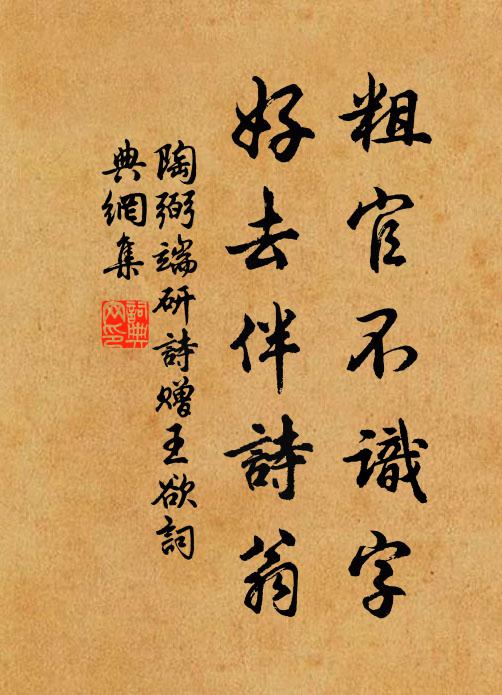 粗官不識字
好去伴詩翁
陶弼端研詩贈王欲詞
典網集
詞典網印